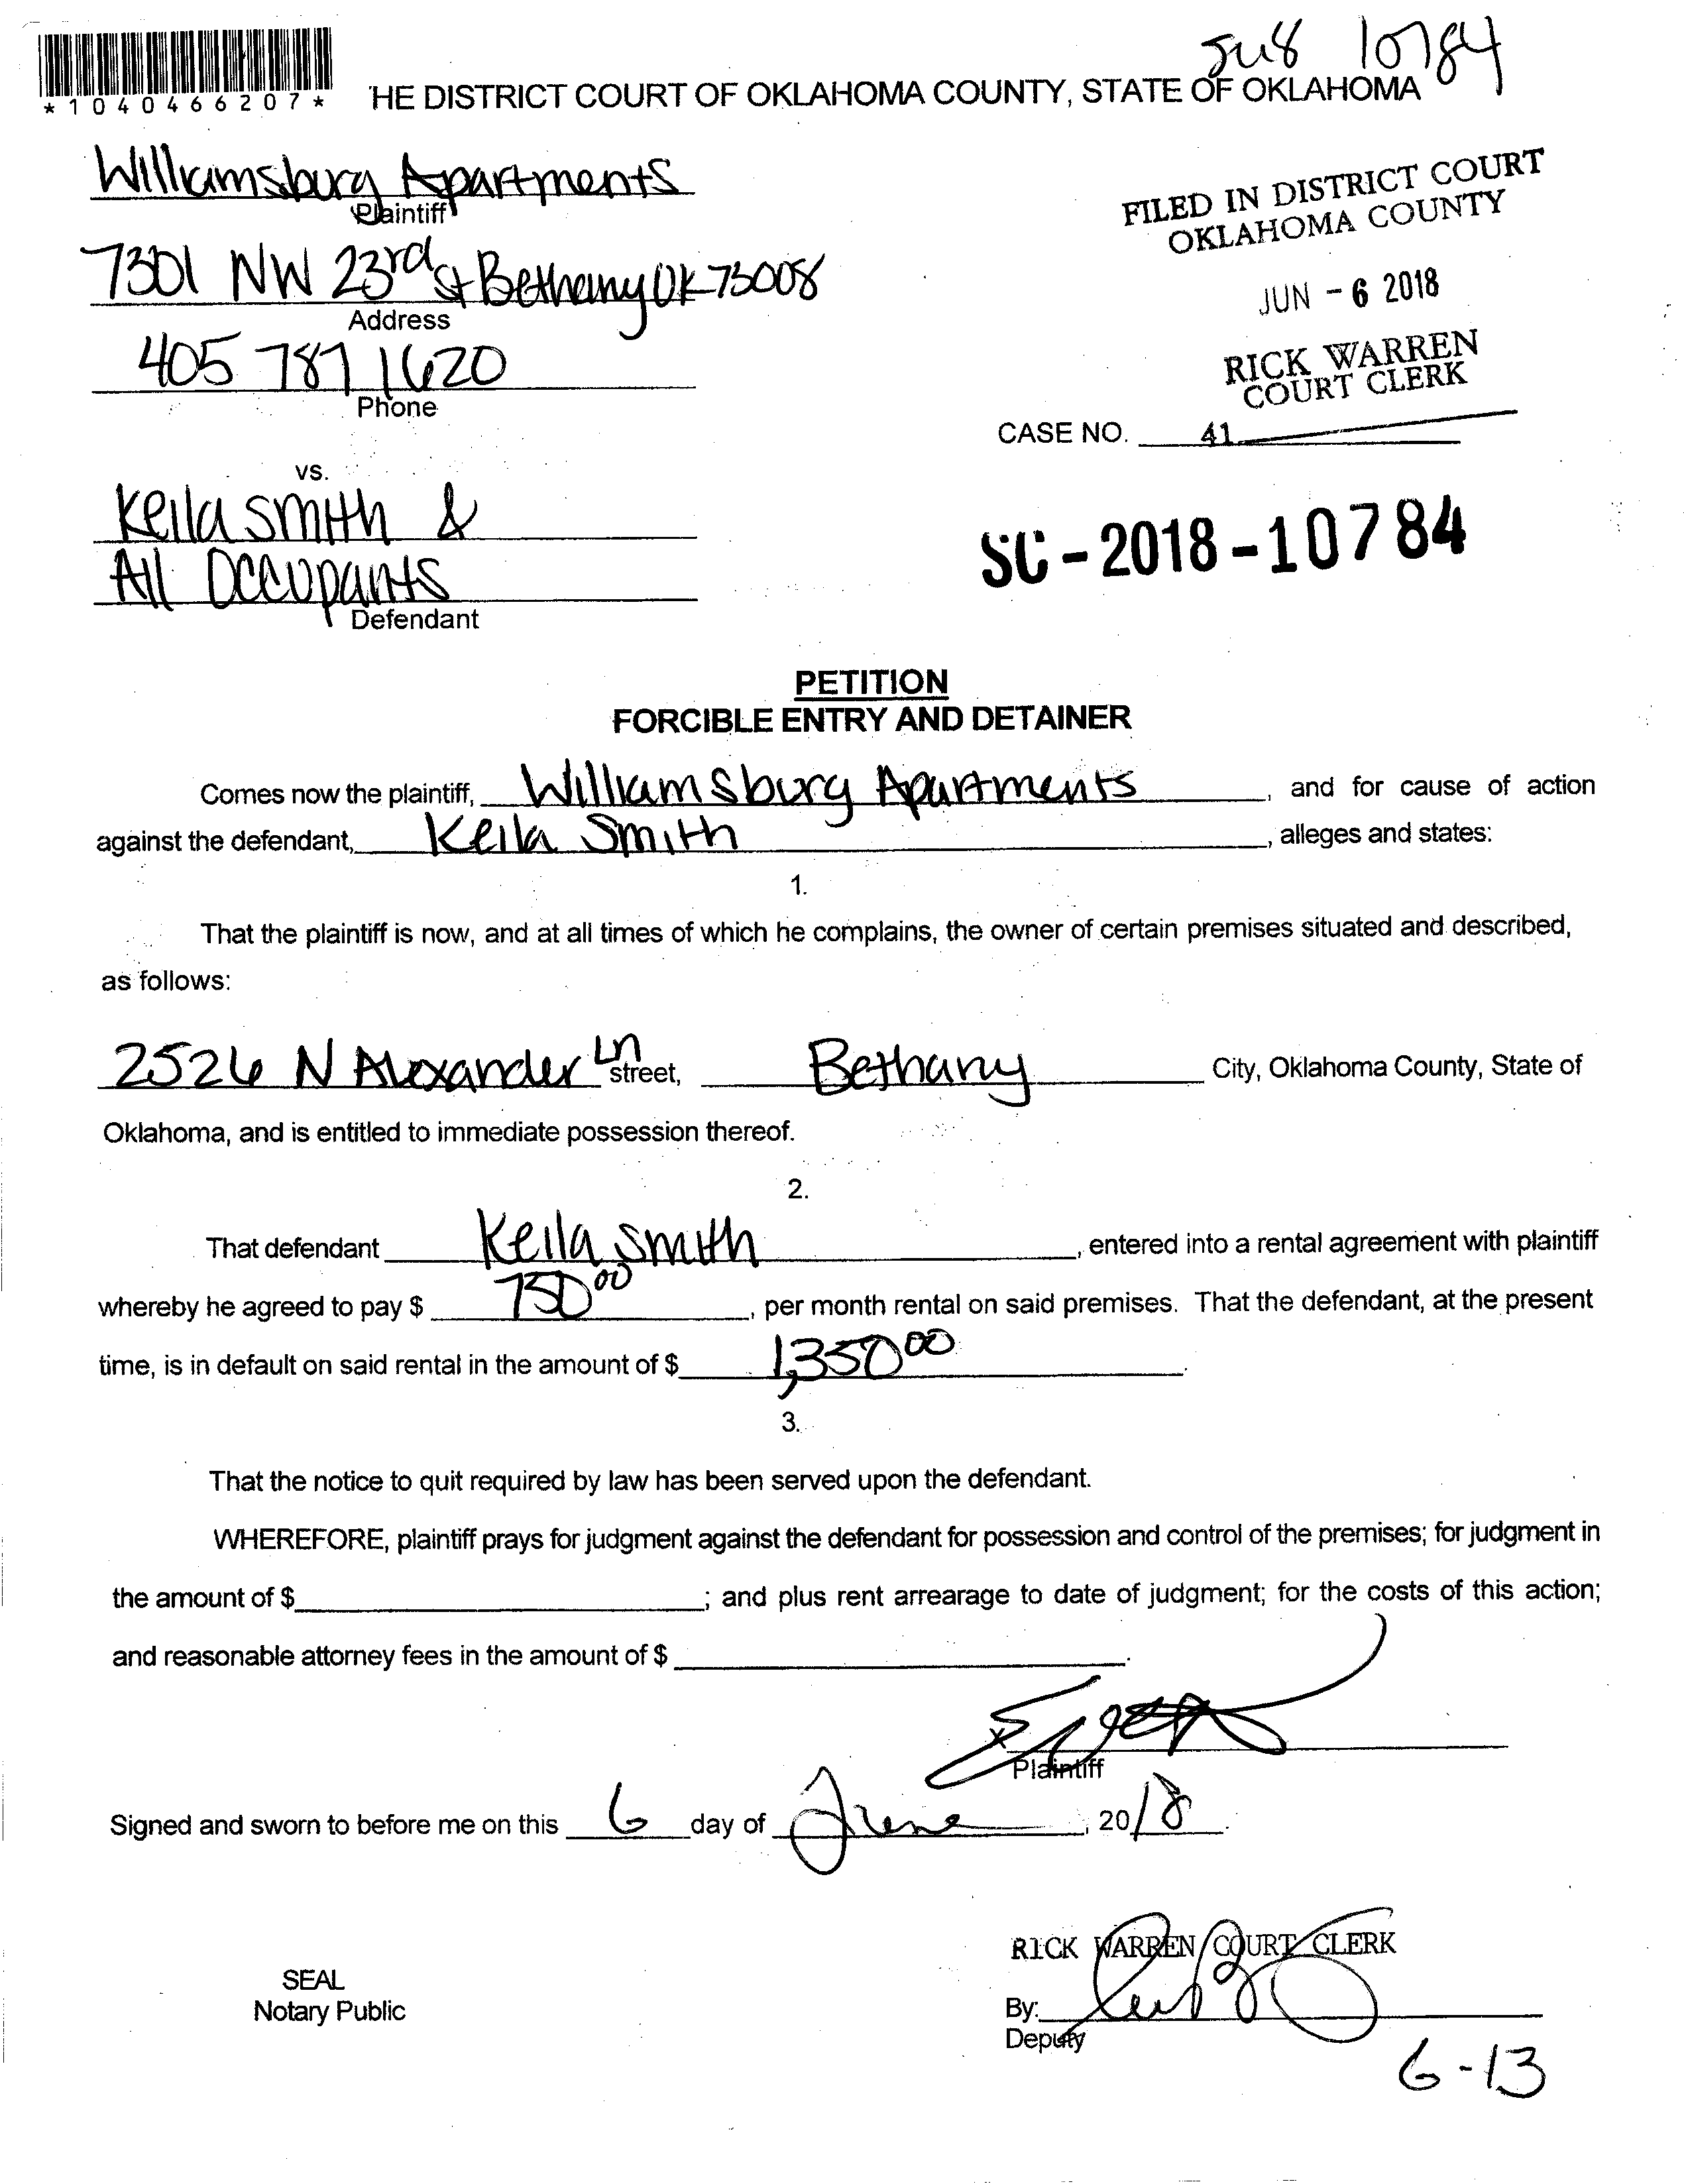 10784
*1040466207*
HE DISTRICT COURT OF OKLAHOMA COUNTY, STATE OF OKLAHOMA
Williamsburg Apartments
Plaintiff
FILED IN DISTRICT COURT
OKLAHOMA COUNTY
7301 NW 23rd St Bethany OK 73008
Address
JUN - 6 2018
405 787 1620
Phone
RICK WARREN
COURT CLERK
CASE NO. 41
vs.
Keila Smith &
All Occupants
Defendant
SC-2018-10784
PETITION
FORCIBLE ENTRY AND DETAINER
Comes now the plaintiff, Williamsburg Apartments, and for cause of action
against the defendant, Keila Smith, alleges and states:
1.
That the plaintiff is now, and at all times of which he complains, the owner of certain premises situated and described,
as follows:
2526 N Alexander Ln street, Bethany City, Oklahoma County, State of
Oklahoma, and is entitled to immediate possession thereof.
2.
That defendant Keila Smith, entered into a rental agreement with plaintiff
whereby he agreed to pay $ 750.00, per month rental on said premises. That the defendant, at the present
time, is in default on said rental in the amount of $ 1,350.00.
3.
That the notice to quit required by law has been served upon the defendant.
WHEREFORE, plaintiff prays for judgment against the defendant for possession and control of the premises; for judgment in
the amount of $ ; and plus rent arrearage to date of judgment; for the costs of this action;
and reasonable attorney fees in the amount of $ .
x
Plaintiff
Signed and sworn to before me on this 6 day of June, 2018.
RICK WARREN COURT CLERK
SEAL
Notary Public
By:
Deputy
6-13